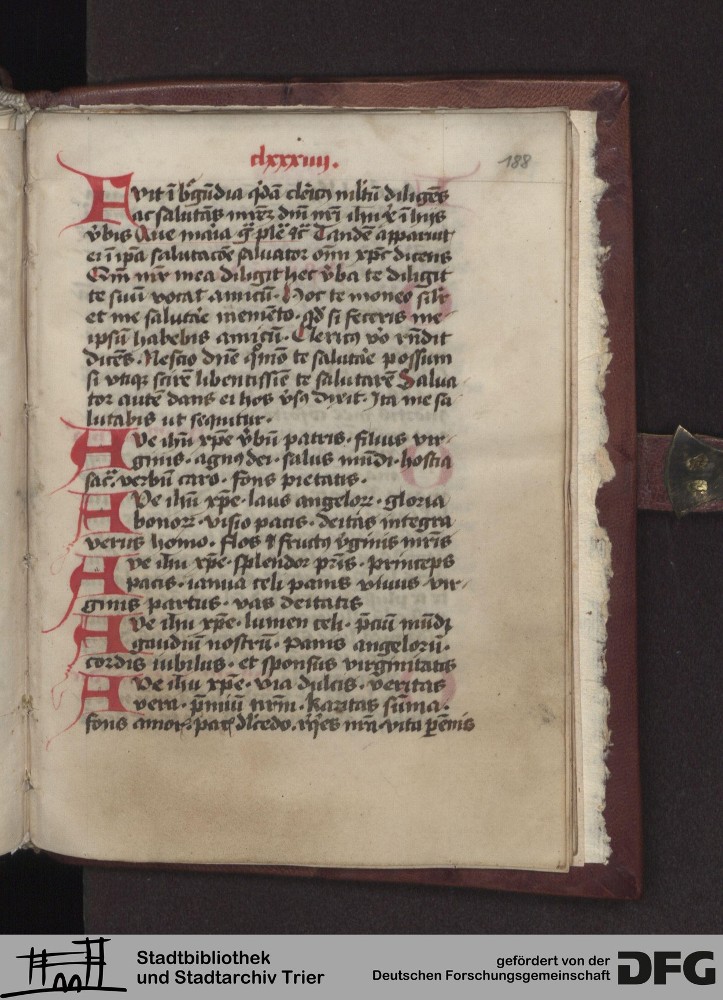 clxxxiiij.
188
Fuit ī bgūdia qdā cleric9 mltū diligēs
ac salutās mrēz dnī nrī ihu xpi ī hijs
v̄bis Aue maria grā plē etc̄ Tandē apparuit
ei ī ipa salutacōe saluator om̄ xp̄c dicens
Qm̄ mr̄ mea diligit hec v̄ba te diligit
te suū vocat amicū. Hoc te moneo silr
et me salutāe memēto. qd si feceris me
ipsū habebis amicū. Cleric9 v̄o rn̄dit
dicēs. Nescio dn̄e qūo te salutāe possum
si vtiqz scirē libentissīe te salutarē Salua
tor autē dans ei hos v̄s9 dixit. Ita me sa
lutabis ut sequitur.
AVe ihū xpē v̄bū patris. filius vir
ginis. agn9 dei. salus mūdi. hostia
sac̄. verbū caro. fons pietatis.
AVe ihū xpē. laus angelorz. gloria
bonorz. visio pacis. deitas integra
verus homo. flos & fruct9 v̄ginis mr̄is
AVe ihū xpē. splendor pr̄is. princeps
pacis. ianua celi panis viuus. vir
ginis partus. vas deitatis
AVe ihū xpē. lumen celi. p̄ciū mūdi
gaudiū nostrū. panis angelorū.
cordis iubilus. et sponsus virginitatis
AVe ihū xpē. via dulcis. veritas
vera. p̄miū nr̄m. karitas sūma.
fons amorz. pax dlcedo. rqes nr̄a. vita pēnis
Stadtbibliothek
und Stadtarchiv Trier
gefördert von der
Deutschen Forschungsgemeinschaft
DFG